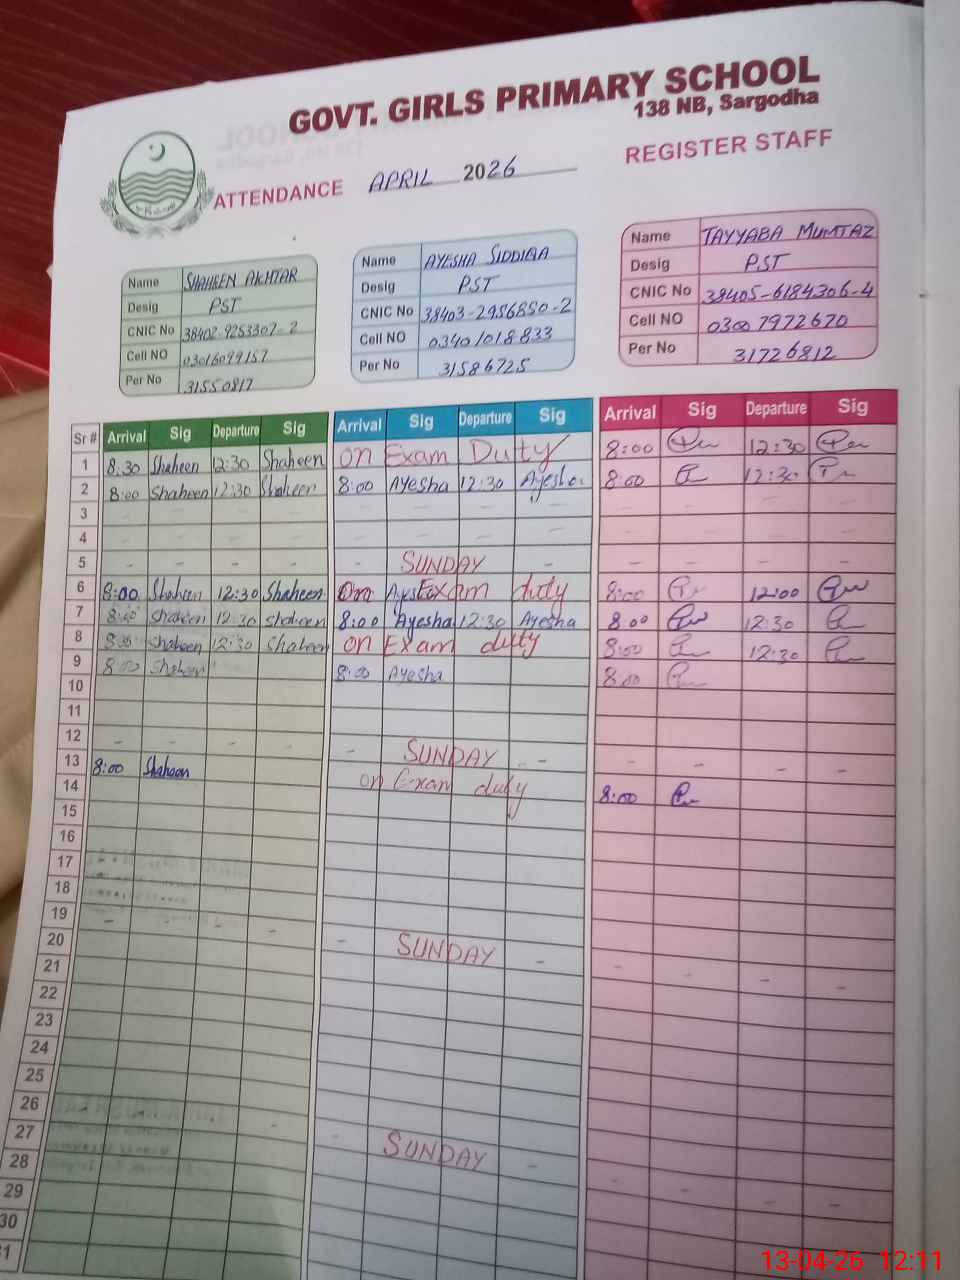 GOVT. GIRLS PRIMARY SCHOOL
138 NB, Sargodha
ATTENDANCE APRIL 2026 REGISTER STAFF
Name SHAHEEN AKHTAR
Desig PST
CNIC No 38402-9253307-2
Cell NO 03016099157
Per No 31550817
Name AYESHA SIDDIQA
Desig PST
CNIC No 38403-2956850-2
Cell NO 03401018833
Per No 31586725
Name TAYYABA MUMTAZ
Desig PST
CNIC No 38405-6184306-4
Cell NO 03007972670
Per No 31726812
Sr # Arrival Sig Departure Sig Arrival Sig Departure Sig Arrival Sig Departure Sig
1 8:30 Shaheen 12:30 Shaheen on Exam Duty 8:00 12:30
2 8:00 Shaheen 12:30 Shaheen 8:00 Ayesha 12:30 Ayesha 8:00 12:30
3 - - - - - - - - - - - -
4 - - - - - - - - - - - -
5 - - - - - SUNDAY - - - - -
6 8:00 Shaheen 12:30 Shaheen On Exam duty 8:00 12:00
7 8:00 Shaheen 12:30 Shaheen 8:00 Ayesha 12:30 Ayesha 8:00 12:30
8 8:00 Shaheen 12:30 Shaheen on Exam duty 8:00 12:30
9 8:00 Shaheen 8:00 Ayesha 8:00
10
11
12 - - - - - SUNDAY - - - - - -
13 8:00 Shaheen on Exam duty 8:00
14
15
16
17
18
19 - - - - - SUNDAY - - - - -
20
21
22
23
24
25
26 - - SUNDAY - - - - -
27
28
29
30
31
13-04-26 12:11